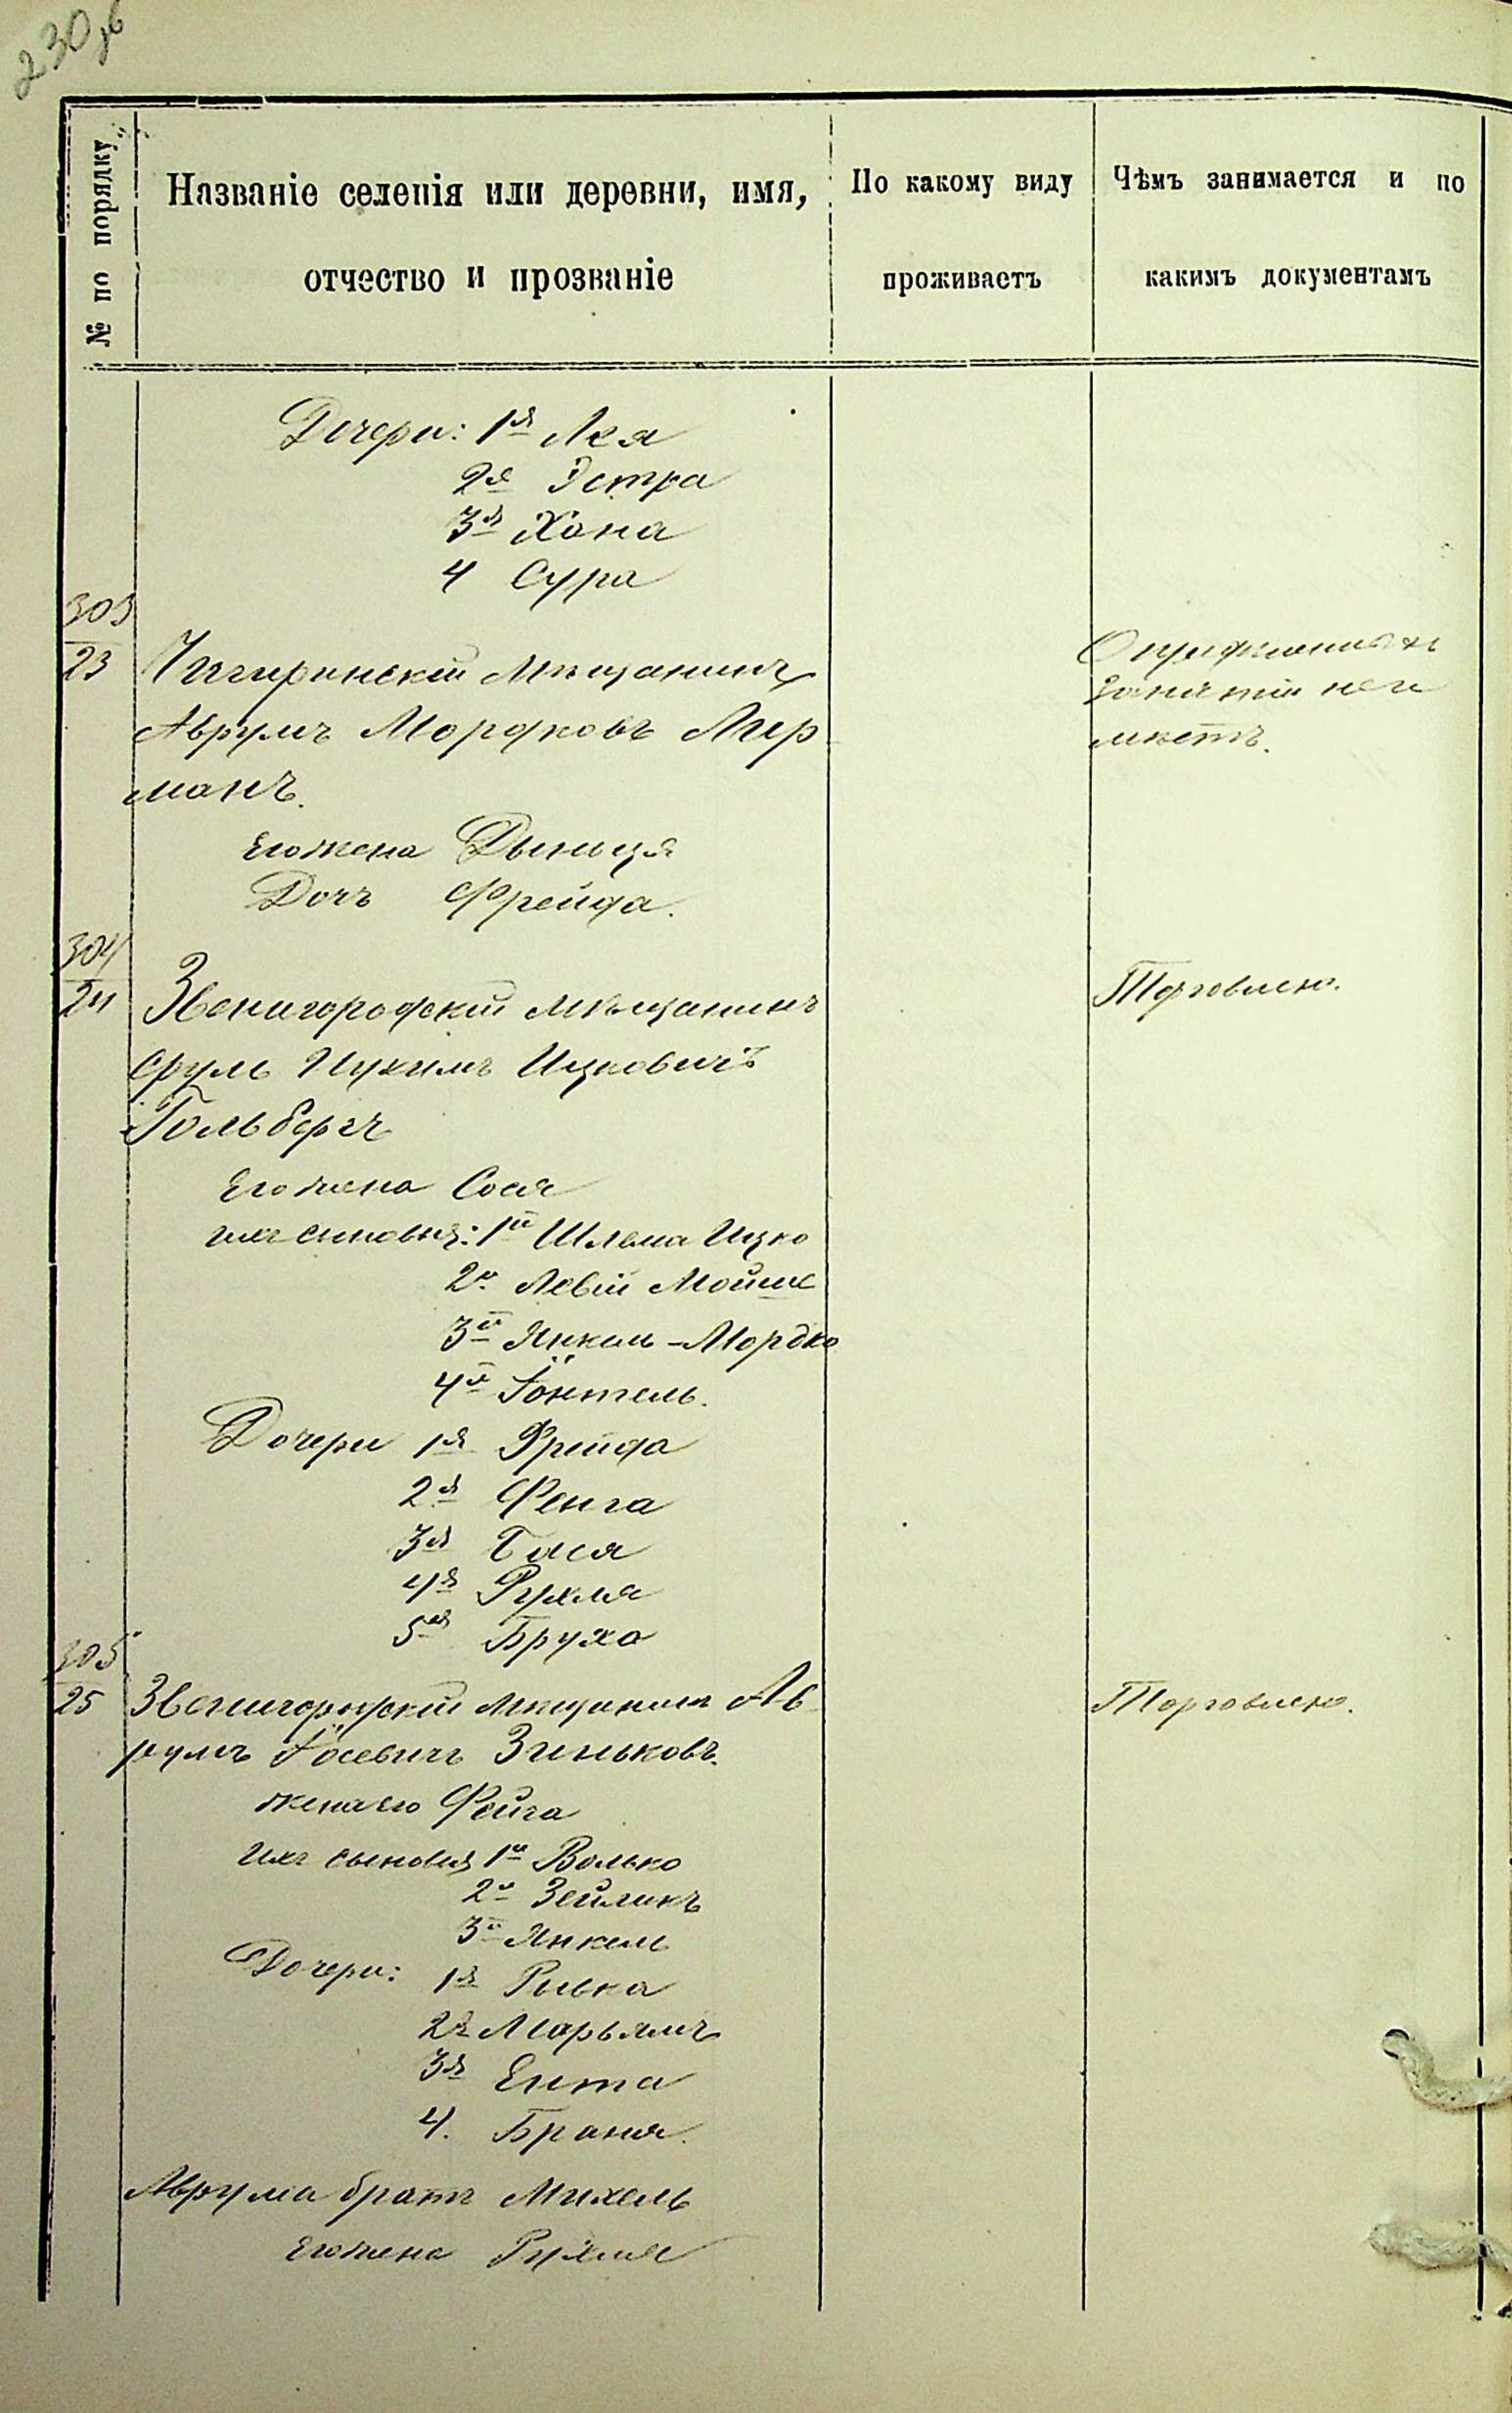 230 об
№ по порядку
Названіе селенія или деревни, имя,
отчество и прозваніе
По какому виду
проживаетъ
Чѣмъ занимается и по
какимъ документамъ
Дочери: 1я Лея
2я Эстра
3я Хана
4 Сура
303
23 Чигиринскій Мѣщанинъ
Аврумъ Мордковъ Лир
манъ.
Его жена Дыньця
Дочь Фрейда.
Опредѣленныхъ
занятій не и
мѣетъ.
304
24 Звенигородскій мѣщанинъ
Сруль Нухимъ Ицковичъ
Гольбергъ
Его жена Сося
ихъ сыновья: 1й Шлема Ицко
2й Левій Мойше
3й Янкель-Мордко
4й Іонтель.
Дочери 1я Фрейда
2я Фейга
3я Бася
4я Рухля
5я Бруха
Торговлею.
305
25 Звенигородскій мѣщанинъ Ав
румъ Іосевичъ Зиньковъ.
жена его Фейга
Ихъ сыновья 1й Волько
2й Зейликъ
3й Янкель
Дочери: 1я Рывка
2я Марьямъ
3я Ента
4. Браня.
Аврума братъ Михель
Его жена Рухля
Торговлею.